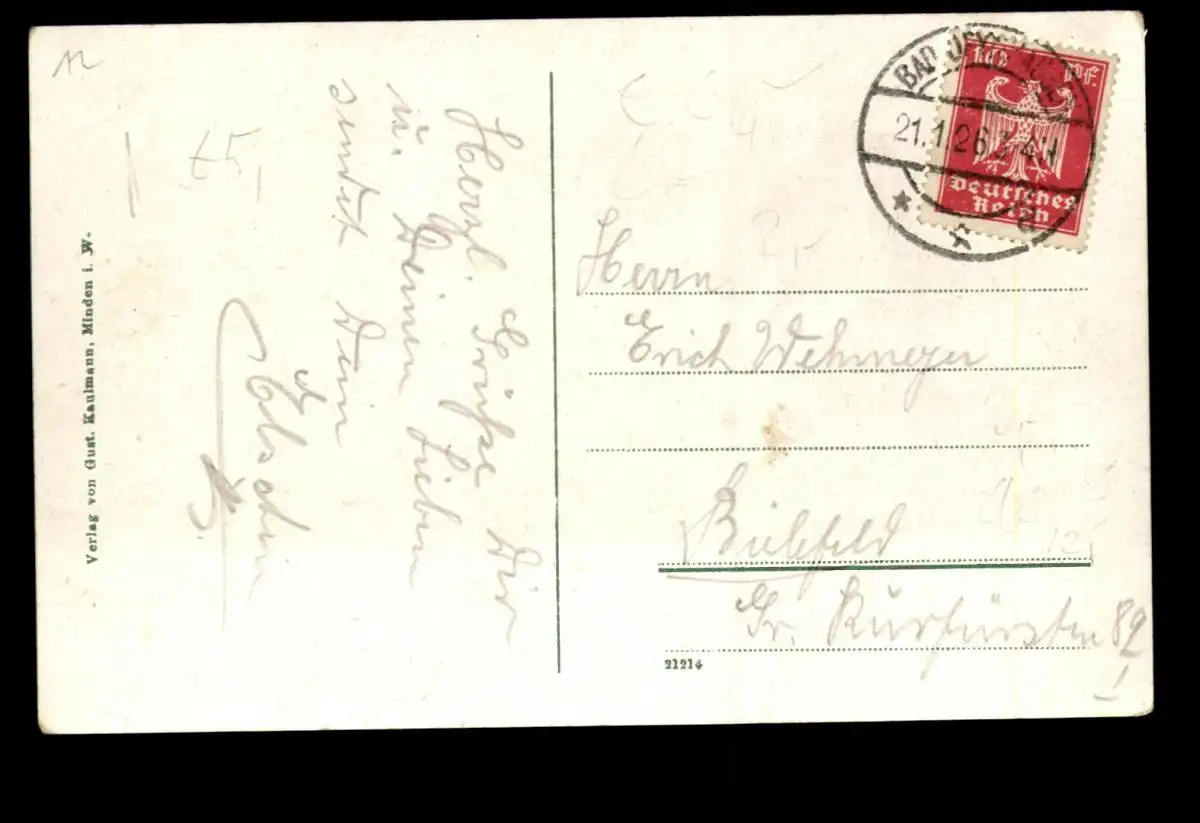 Herzl. Grüße Dir
u. Deinen Lieben
sendet Dein
Verlag von Gust. Kaulmann, Minden i. W.
BAD
21.1.26 3-4N
10 Pf.
Deutsches
Reich
Herrn
Erich Wehmeyer
Bielefeld
Gr. Kurfürsten 82
21214